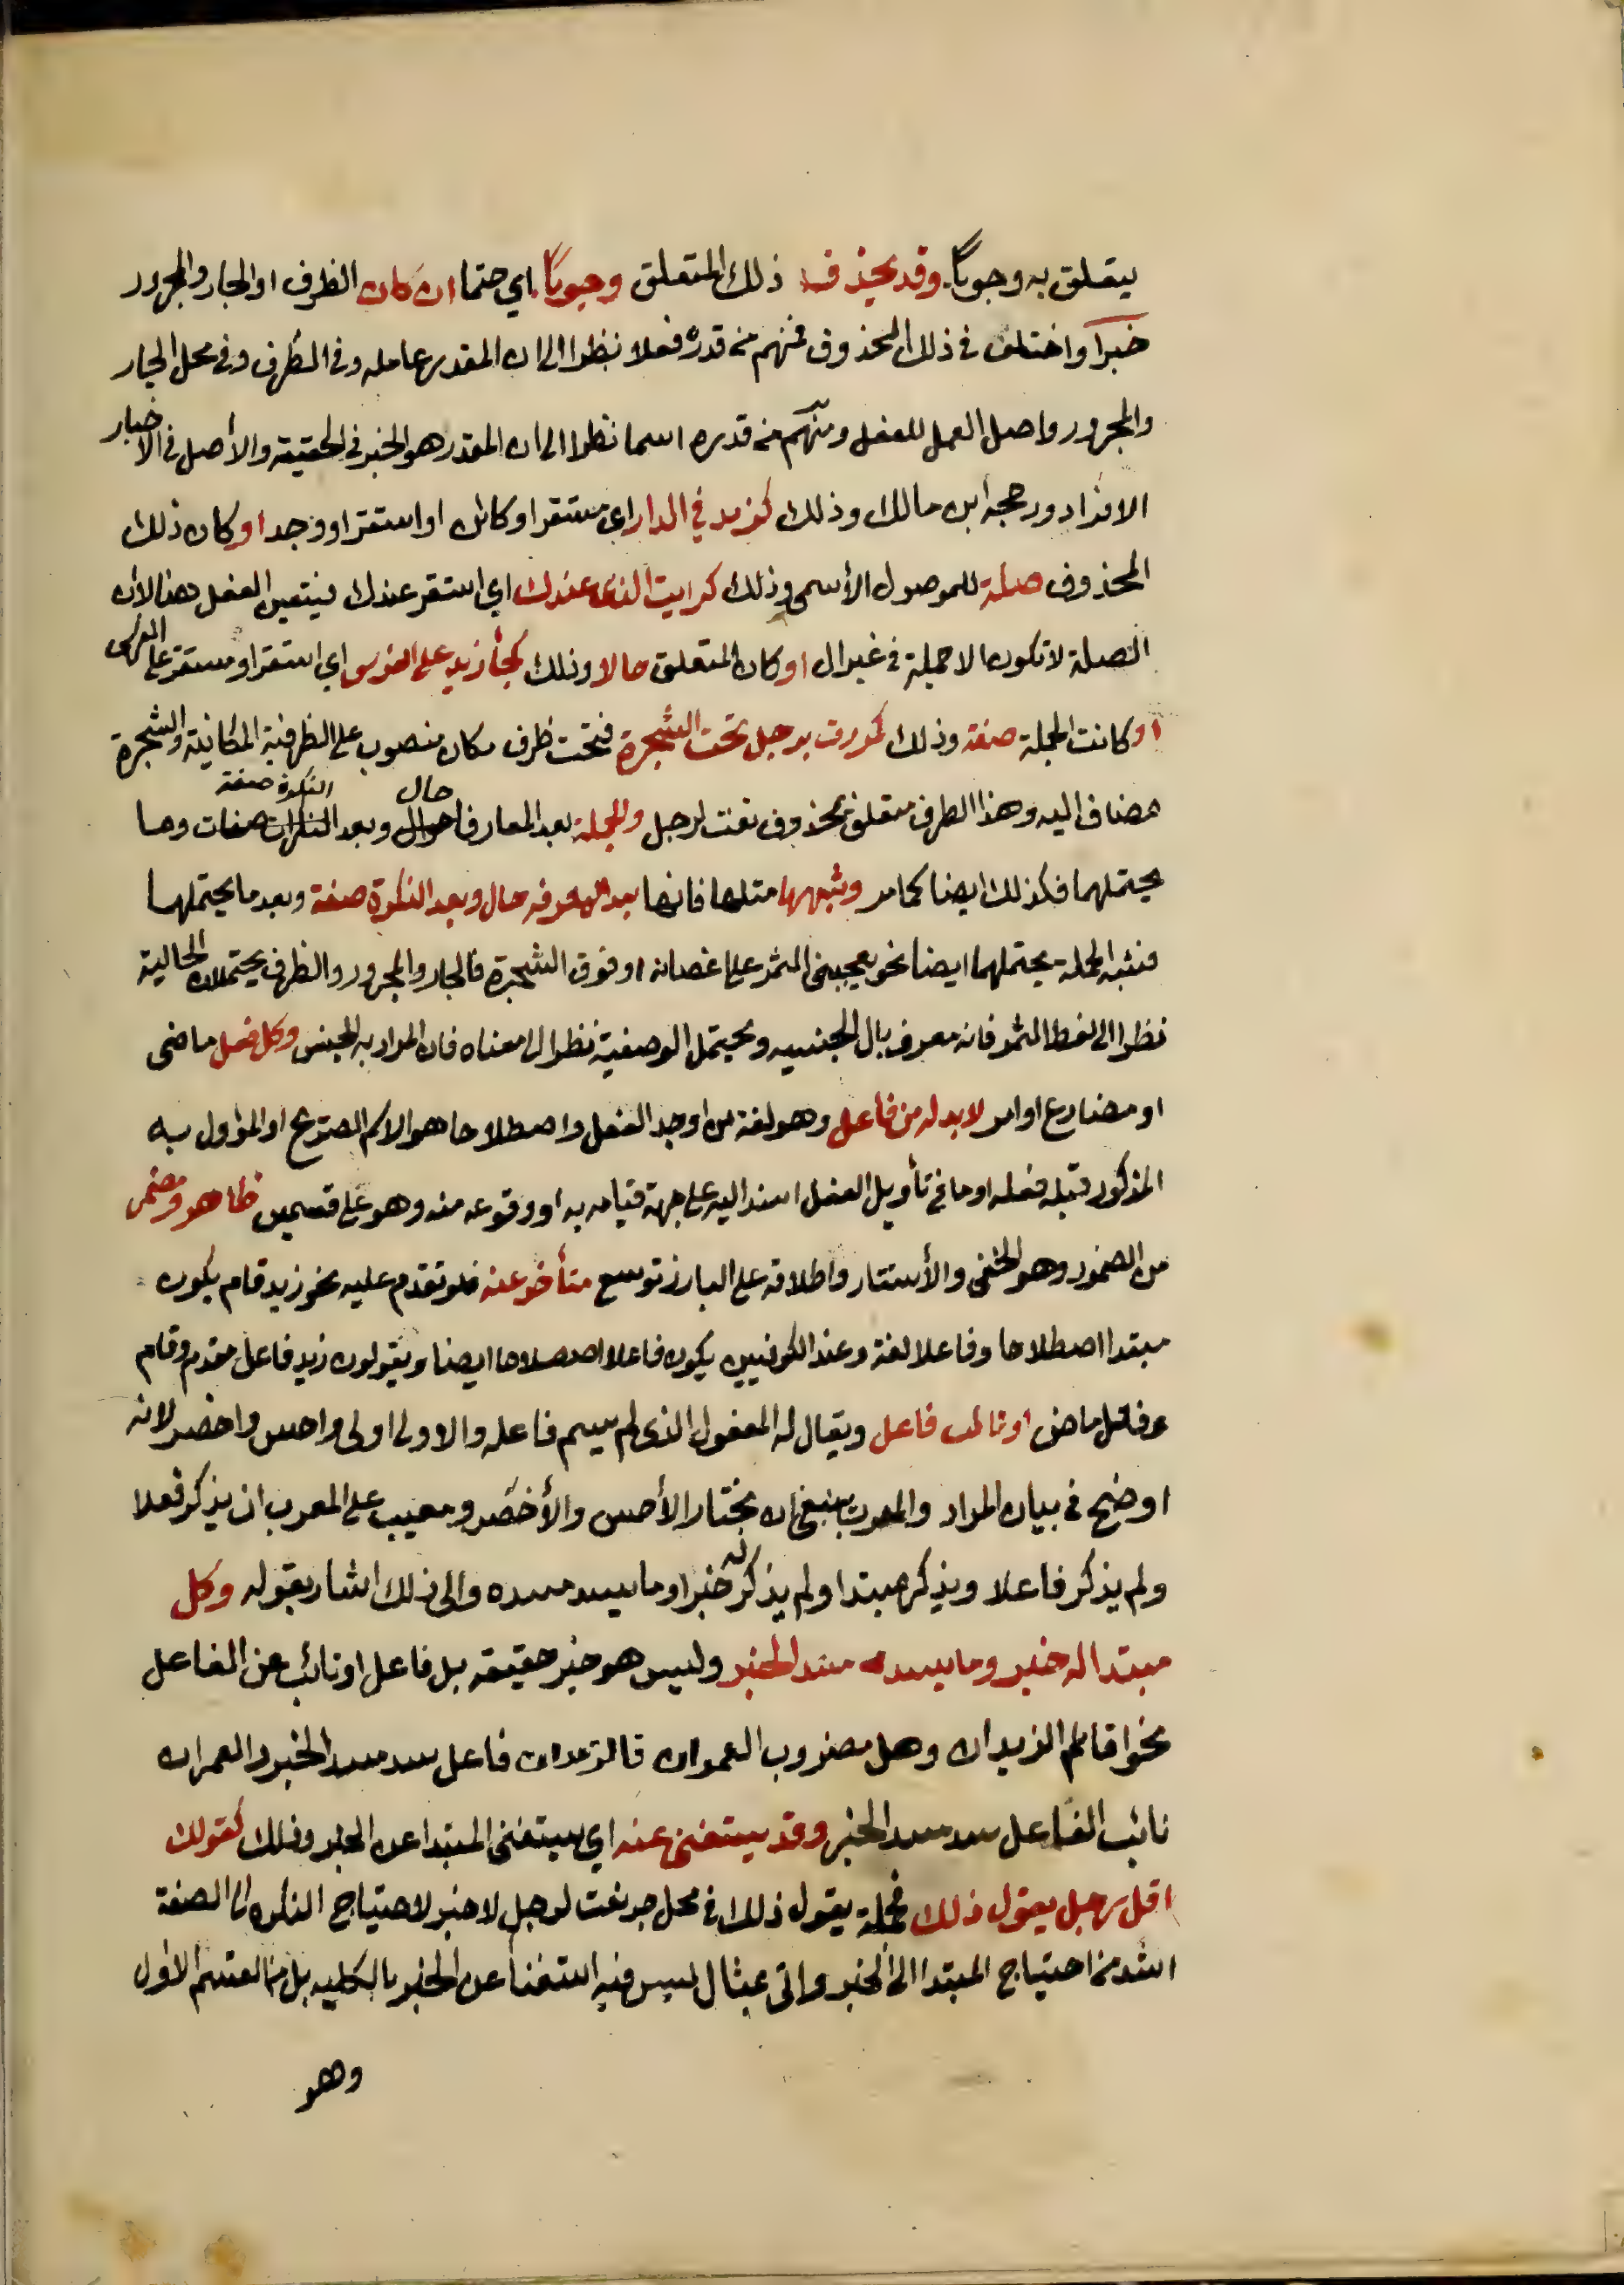 يتعلق به وجوباً. وقد يحذف ذلك المتعلق وجوباً اي حتما ان كان الظرف او الجار والمجرور
خبرا واختلف في ذلك المحذوف فمنهم من قدره فعلا نظرا الى ان المقدر عامله وفي الظرف وفي محل الجار
والمجرور واصل العمل للفعل ومنهم من قدره اسما نظرا الى ان المقدر هو الخبر في الحقيقة والأصل في الاخبار
الافراد ورجحه ابن مالك وذلك كزيد في الدار اي مستقر او كائن او استقر او وجد او كان ذلك
المحذوف صلة للموصول الأسمي وذلك كرايت الذي عندك اي استقر عندك فيتعين الفعل هنا لان
الصلة لا تكون الا جملة في غير ال او كان المتعلق حالا وذلك كجأ زيد على الفرس اي استقر او مستقر على الفرس
او كانت الجملة صفة وذلك كمررت برجل تحت الشجرة فتحت ظرف مكان منصوب على الظرفية المكانية والشجرة
مضاف اليه وهذا الظرف متعلق بمحذوف نعت لرجل والجملة بعد المعارف احوال حال وبعد النكرات صفات النكرة صفة وما
يحتملهما فكذلك ايضا كما مر وشبهها مثلها فانها بعد المعرفه حال وبعد النكرة صفة وبعد ما يحتملهما
فشبه الجملة يحتملهما ايضا نحو يعجبني الثمر على اغصانه او فوق الشجرة فالجار والمجرور والظرف يحتملان الحالية
نظرا الى لفظ الثمر فانه معرف بال الجنسيه ويحتمل الوصفية نظرا الى معناه فان المراد به الجنس وكل فعل ماضي
او مضارع او امر لا بد له من فاعل وهو لغة من اوجد الفعل واصطلاحا هو الاسم الصريح او المؤول به
المذكور قبله فعله او ما في تأويل الفعل اسند اليه على جهة قيامه به او وقوعه منه وهو على قسمين ظاهر ومضمر
من الضمور وهو الخفي والأستتار واطلاقه على البارز توسع متأخر عنه فلو تقدم عليه نحو زيد قام يكون
مبتدا اصطلاحا وفاعلا لغة وعند الكوفيين يكون فاعلا اصطلاحا ايضا ويقولون زيد فاعل مقدم وقام
فعل ماض او نائب فاعل ويقال له المفعول الذي لم يسم فاعله والاولى اولى واحسن واخصر لانه
اوضح في بيان المراد والمعرب ينبغي ان يختار الأحسن والأخصر ومعيب على المعرب ان يذكر فعلا
ولم يذكر فاعلا ويذكر مبتدا ولم يذكر له خبرا وما يسد مسده والى ذلك اشار بقوله وكل
مبتدا له خبر وما يسد مسد الخبر وليس هو خبر حقيقه بل فاعل او نائب عن الفاعل
نحو اقائم الزيدان وهل مضروب العمران فالزيدان فاعل سد مسد الخبر والعمران
نائب الفاعل سد مسد الخبر وقد يستغنى عنه اي يستغنى المبتدا عن الخبر وذلك كقولك
اقل رجل يقول ذلك فجملة يقول ذلك في محل جر نعت لرجل لا خبر لاحتياج النكره الى الصفة
اشد من احتياج المبتدا الى الخبر واتى بمثال ليس فيه استغنأ عن الخبر بالكليه بل من القسم الاول
وهو